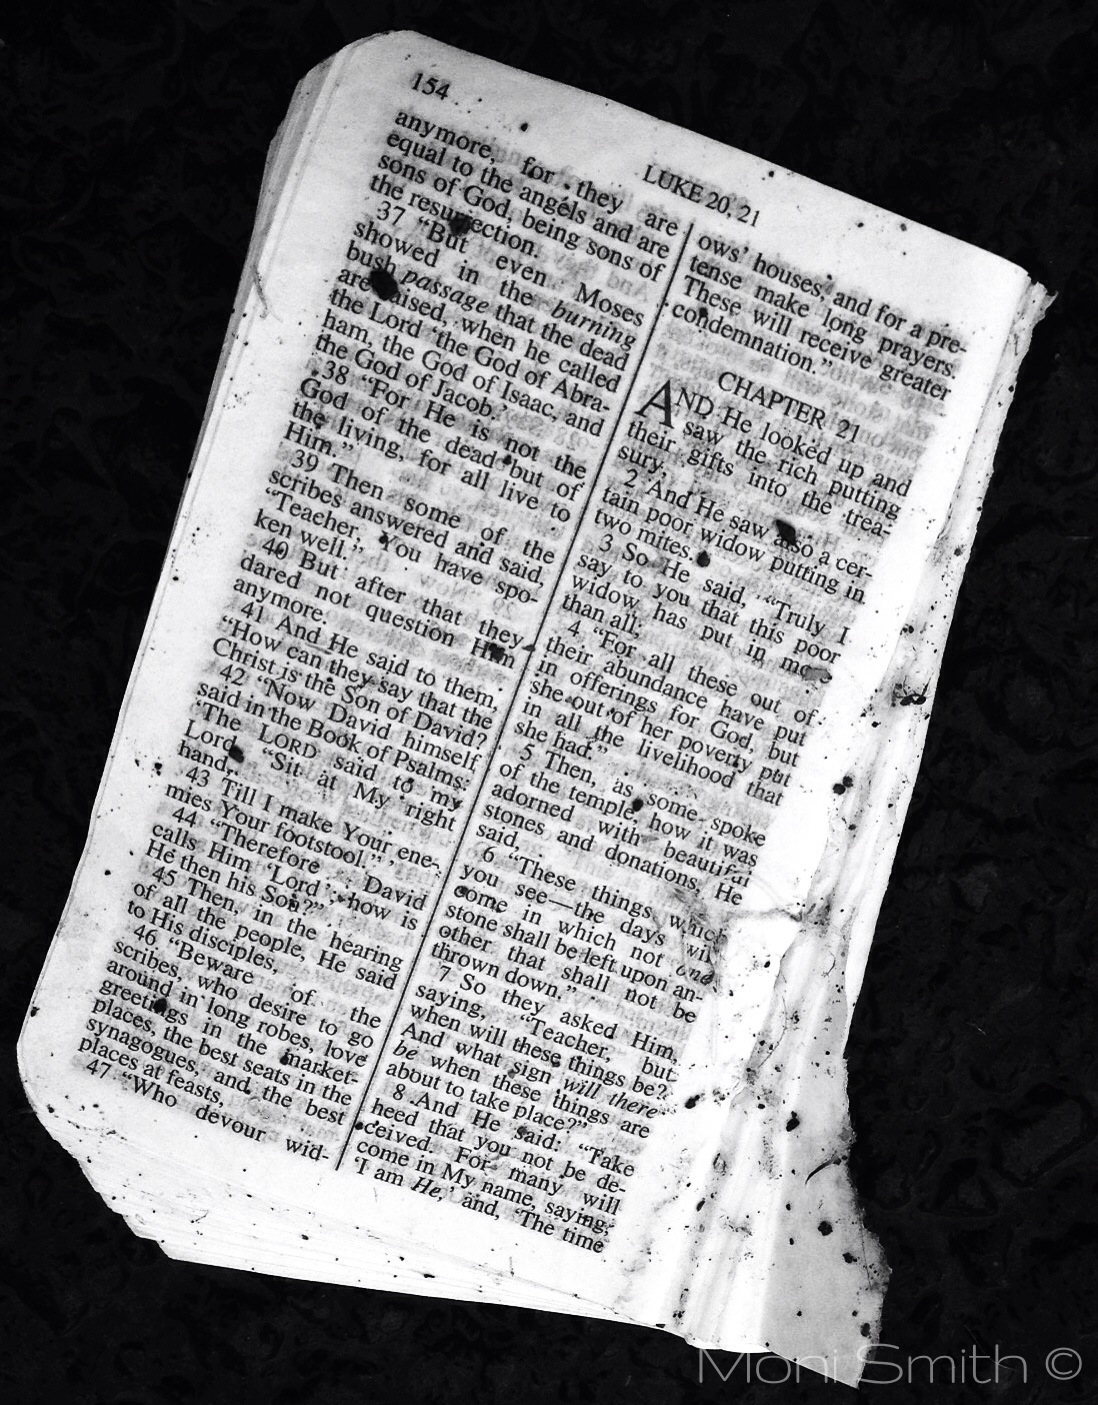 154
LUKE 20, 21
anymore, for they are
equal to the angels and are
sons of God, being sons of
the resurrection.
37 "But even Moses
showed in the burning
bush passage that the dead
are raised, when he called
the Lord 'the God of Abra-
ham, the God of Isaac, and
the God of Jacob.'
38 "For He is not the
God of the dead but of
the living, for all live to
Him."
39 Then some of the
scribes answered and said,
"Teacher, You have spo-
ken well."
40 But after that they
dared not question Him
anymore.
41 And He said to them,
"How can they say that the
Christ is the Son of David?
42 "Now David himself
said in the Book of Psalms:
'The LORD said to my
Lord, "Sit at My right
hand,
43 Till I make Your ene-
mies Your footstool."'
44 "Therefore David
calls Him 'Lord'; how is
He then his Son?"
45 Then, in the hearing
of all the people, He said
to His disciples,
46 "Beware of the
scribes, who desire to go
around in long robes, love
greetings in the market-
places, the best seats in the
synagogues, and the best
places at feasts,
47 "Who devour wid-
ows' houses, and for a pre-
tense make long prayers.
These will receive greater
condemnation."
CHAPTER 21
AND He looked up and
saw the rich putting
their gifts into the trea-
sury,
2 And He saw also a cer-
tain poor widow putting in
two mites.
3 So He said, "Truly I
say to you that this poor
widow has put in
than all;
4 "For all these out of
their abundance have put
in offerings for God, but
she out of her poverty put
in all the livelihood that
she had."
5 Then, as some spoke
of the temple, how it was
adorned with beautiful
stones and donations, He
said,
6 "These things which
you see—the days will
come in which not one
stone shall be left upon an-
other that shall not be
thrown down."
7 So they asked Him,
saying, "Teacher, but
when will these things be?
And what sign will there
be when these things are
about to take place?"
8 And He said: "Take
heed that you not be de-
ceived. For many will
come in My name, saying,
'I am He,' and, 'The time
Moni Smith ©